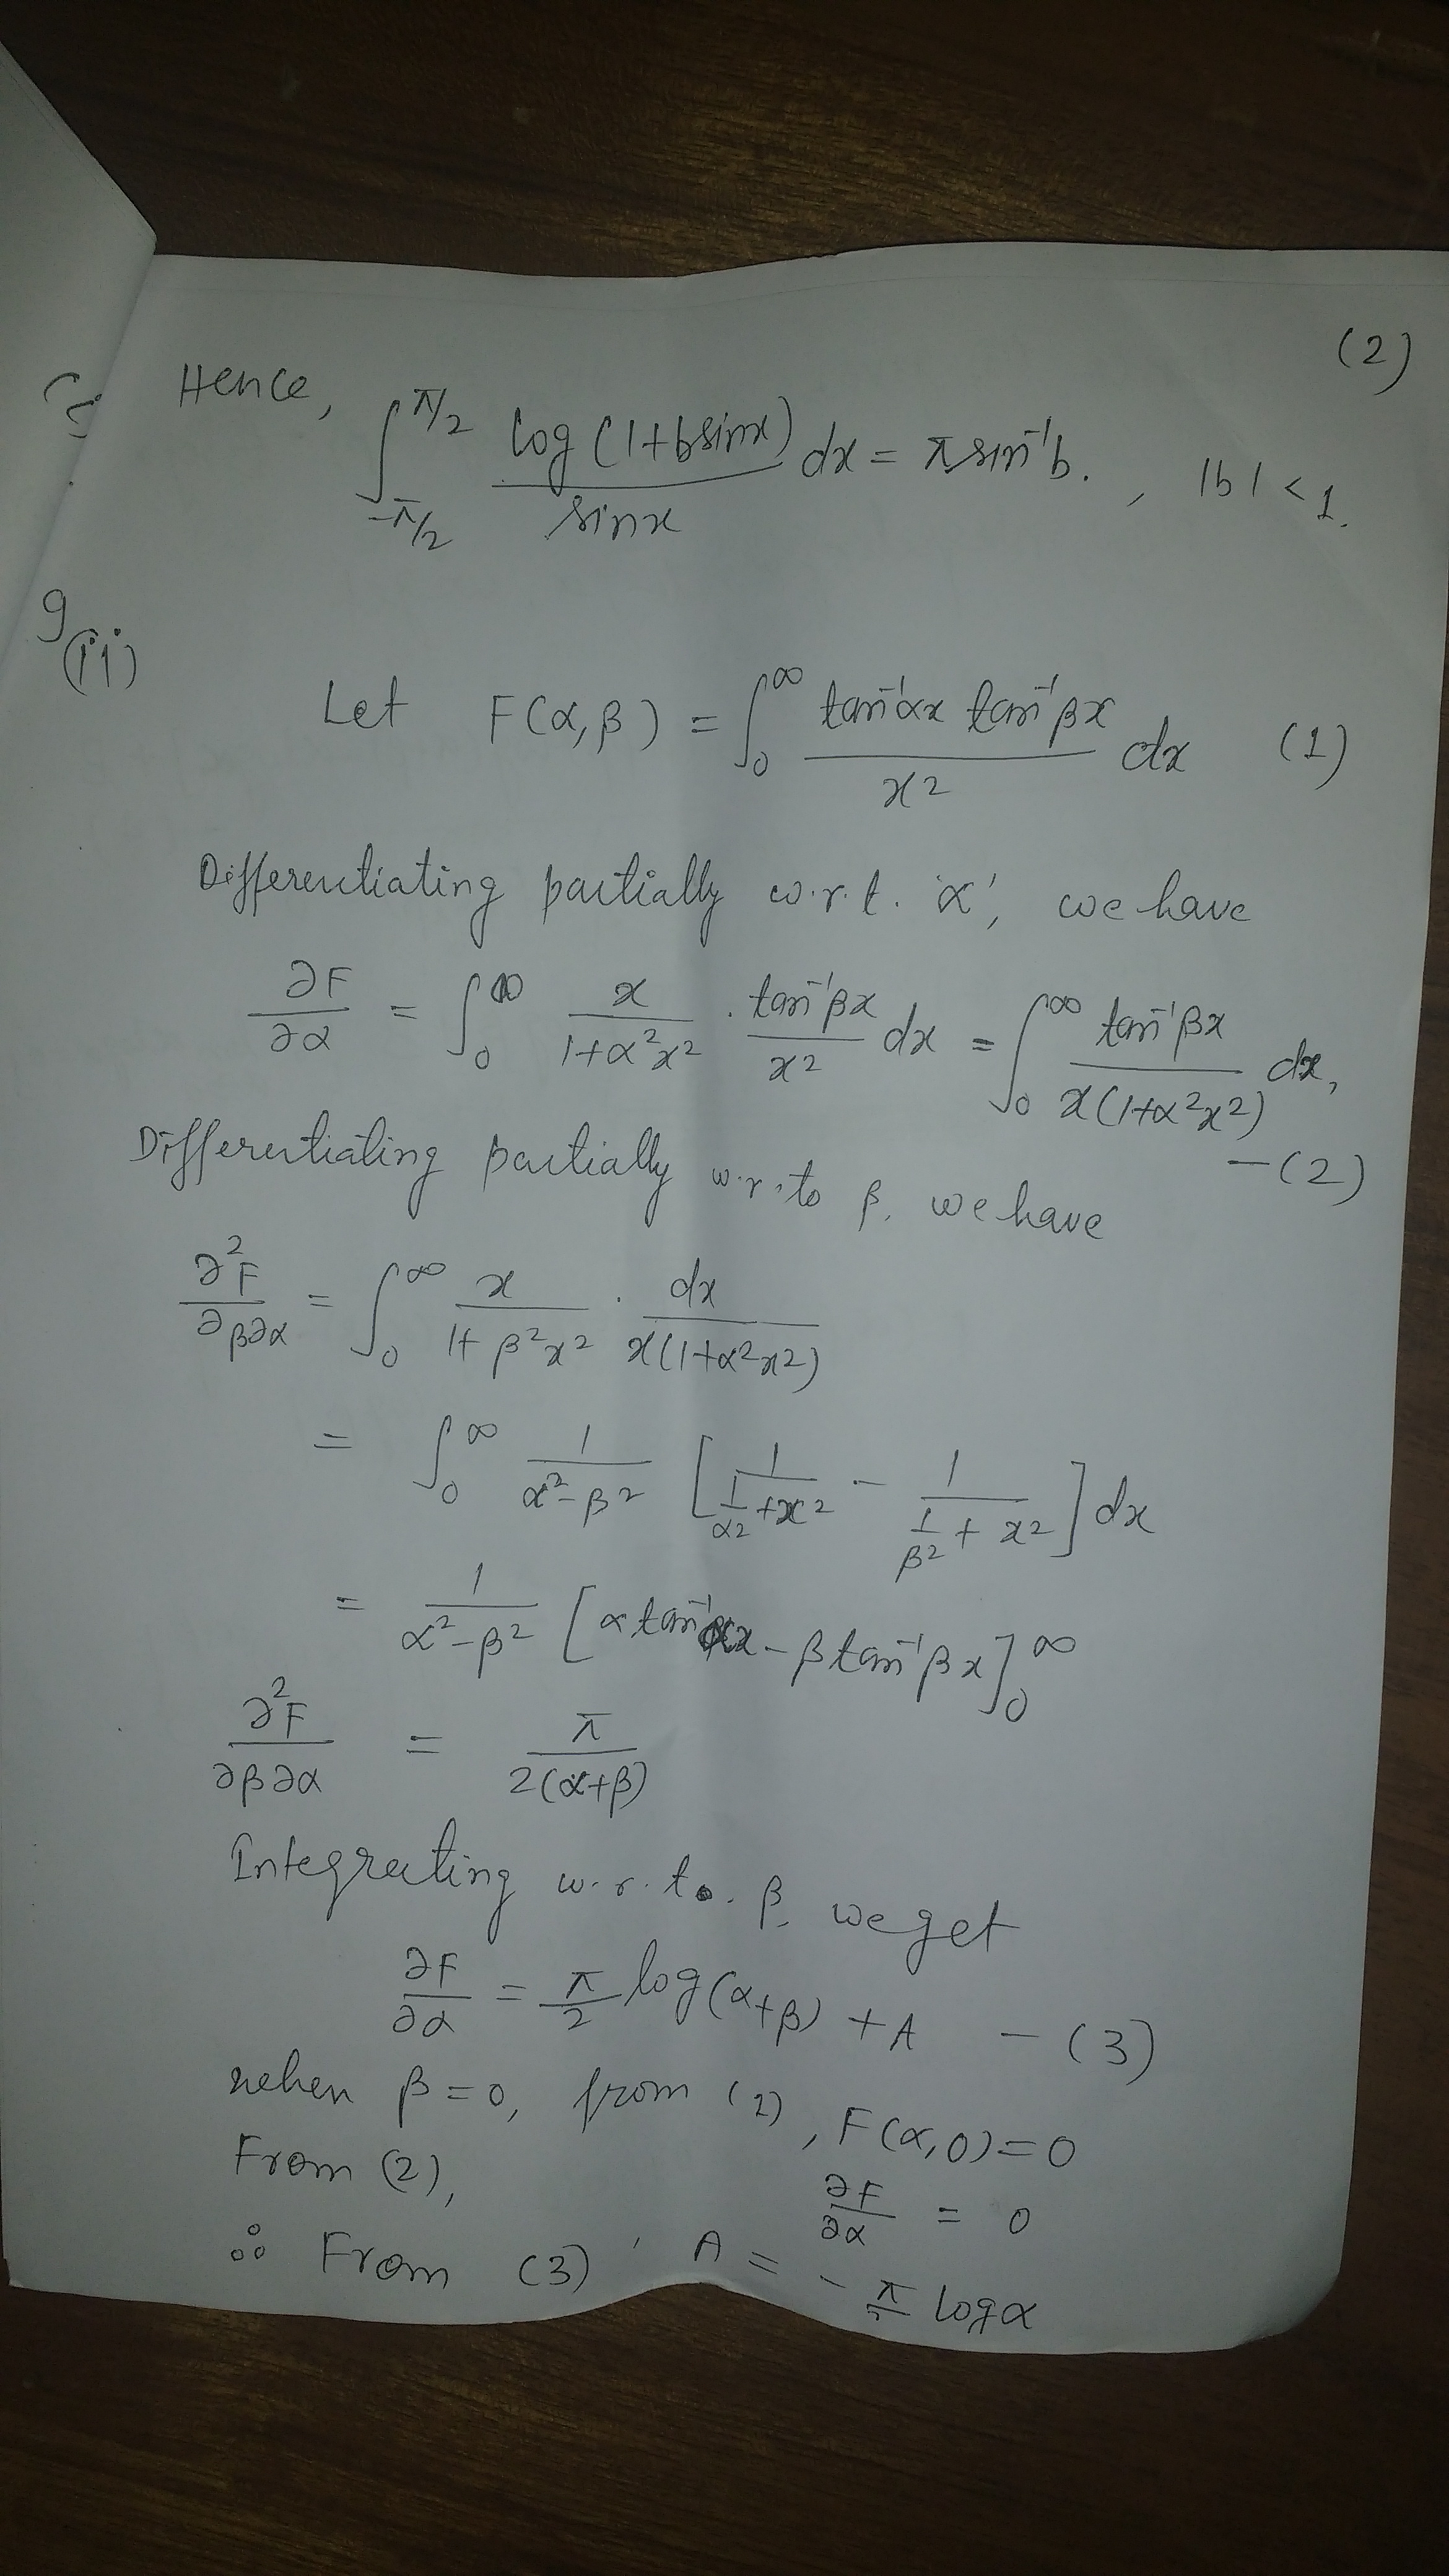 (2)
Hence, ∫_{-π/2}^{π/2} log(1+b sinx)/sinx dx = π sin⁻¹b. , |b| < 1.
9
(ii)
Let F(α,β) = ∫_0^∞ tan⁻¹αx tan⁻¹βx / x² dx (1)
Differentiating partially w.r.t. 'α', we have
∂F/∂α = ∫_0^∞ x/(1+α²x²) · tan⁻¹βx/x² dx = ∫_0^∞ tan⁻¹βx / x(1+α²x²) dx,
—(2)
Differentiating partially w.r.to β, we have
∂²F/∂β∂α = ∫_0^∞ x/(1+β²x²) · dx/x(1+α²x²)
= ∫_0^∞ 1/(α²-β²) [1/(1/α²+x²) - 1/(1/β²+x²)] dx
= 1/(α²-β²) [α tan⁻¹αx - β tan⁻¹βx]_0^∞
∂²F/∂β∂α = π/2(α+β)
Integrating w.r.to. β, we get
∂F/∂α = π/2 log(α+β) + A —(3)
when β=0, from (1), F(α,0)=0
From (2), ∂F/∂α = 0
∴ From (3), A = -π/2 logα